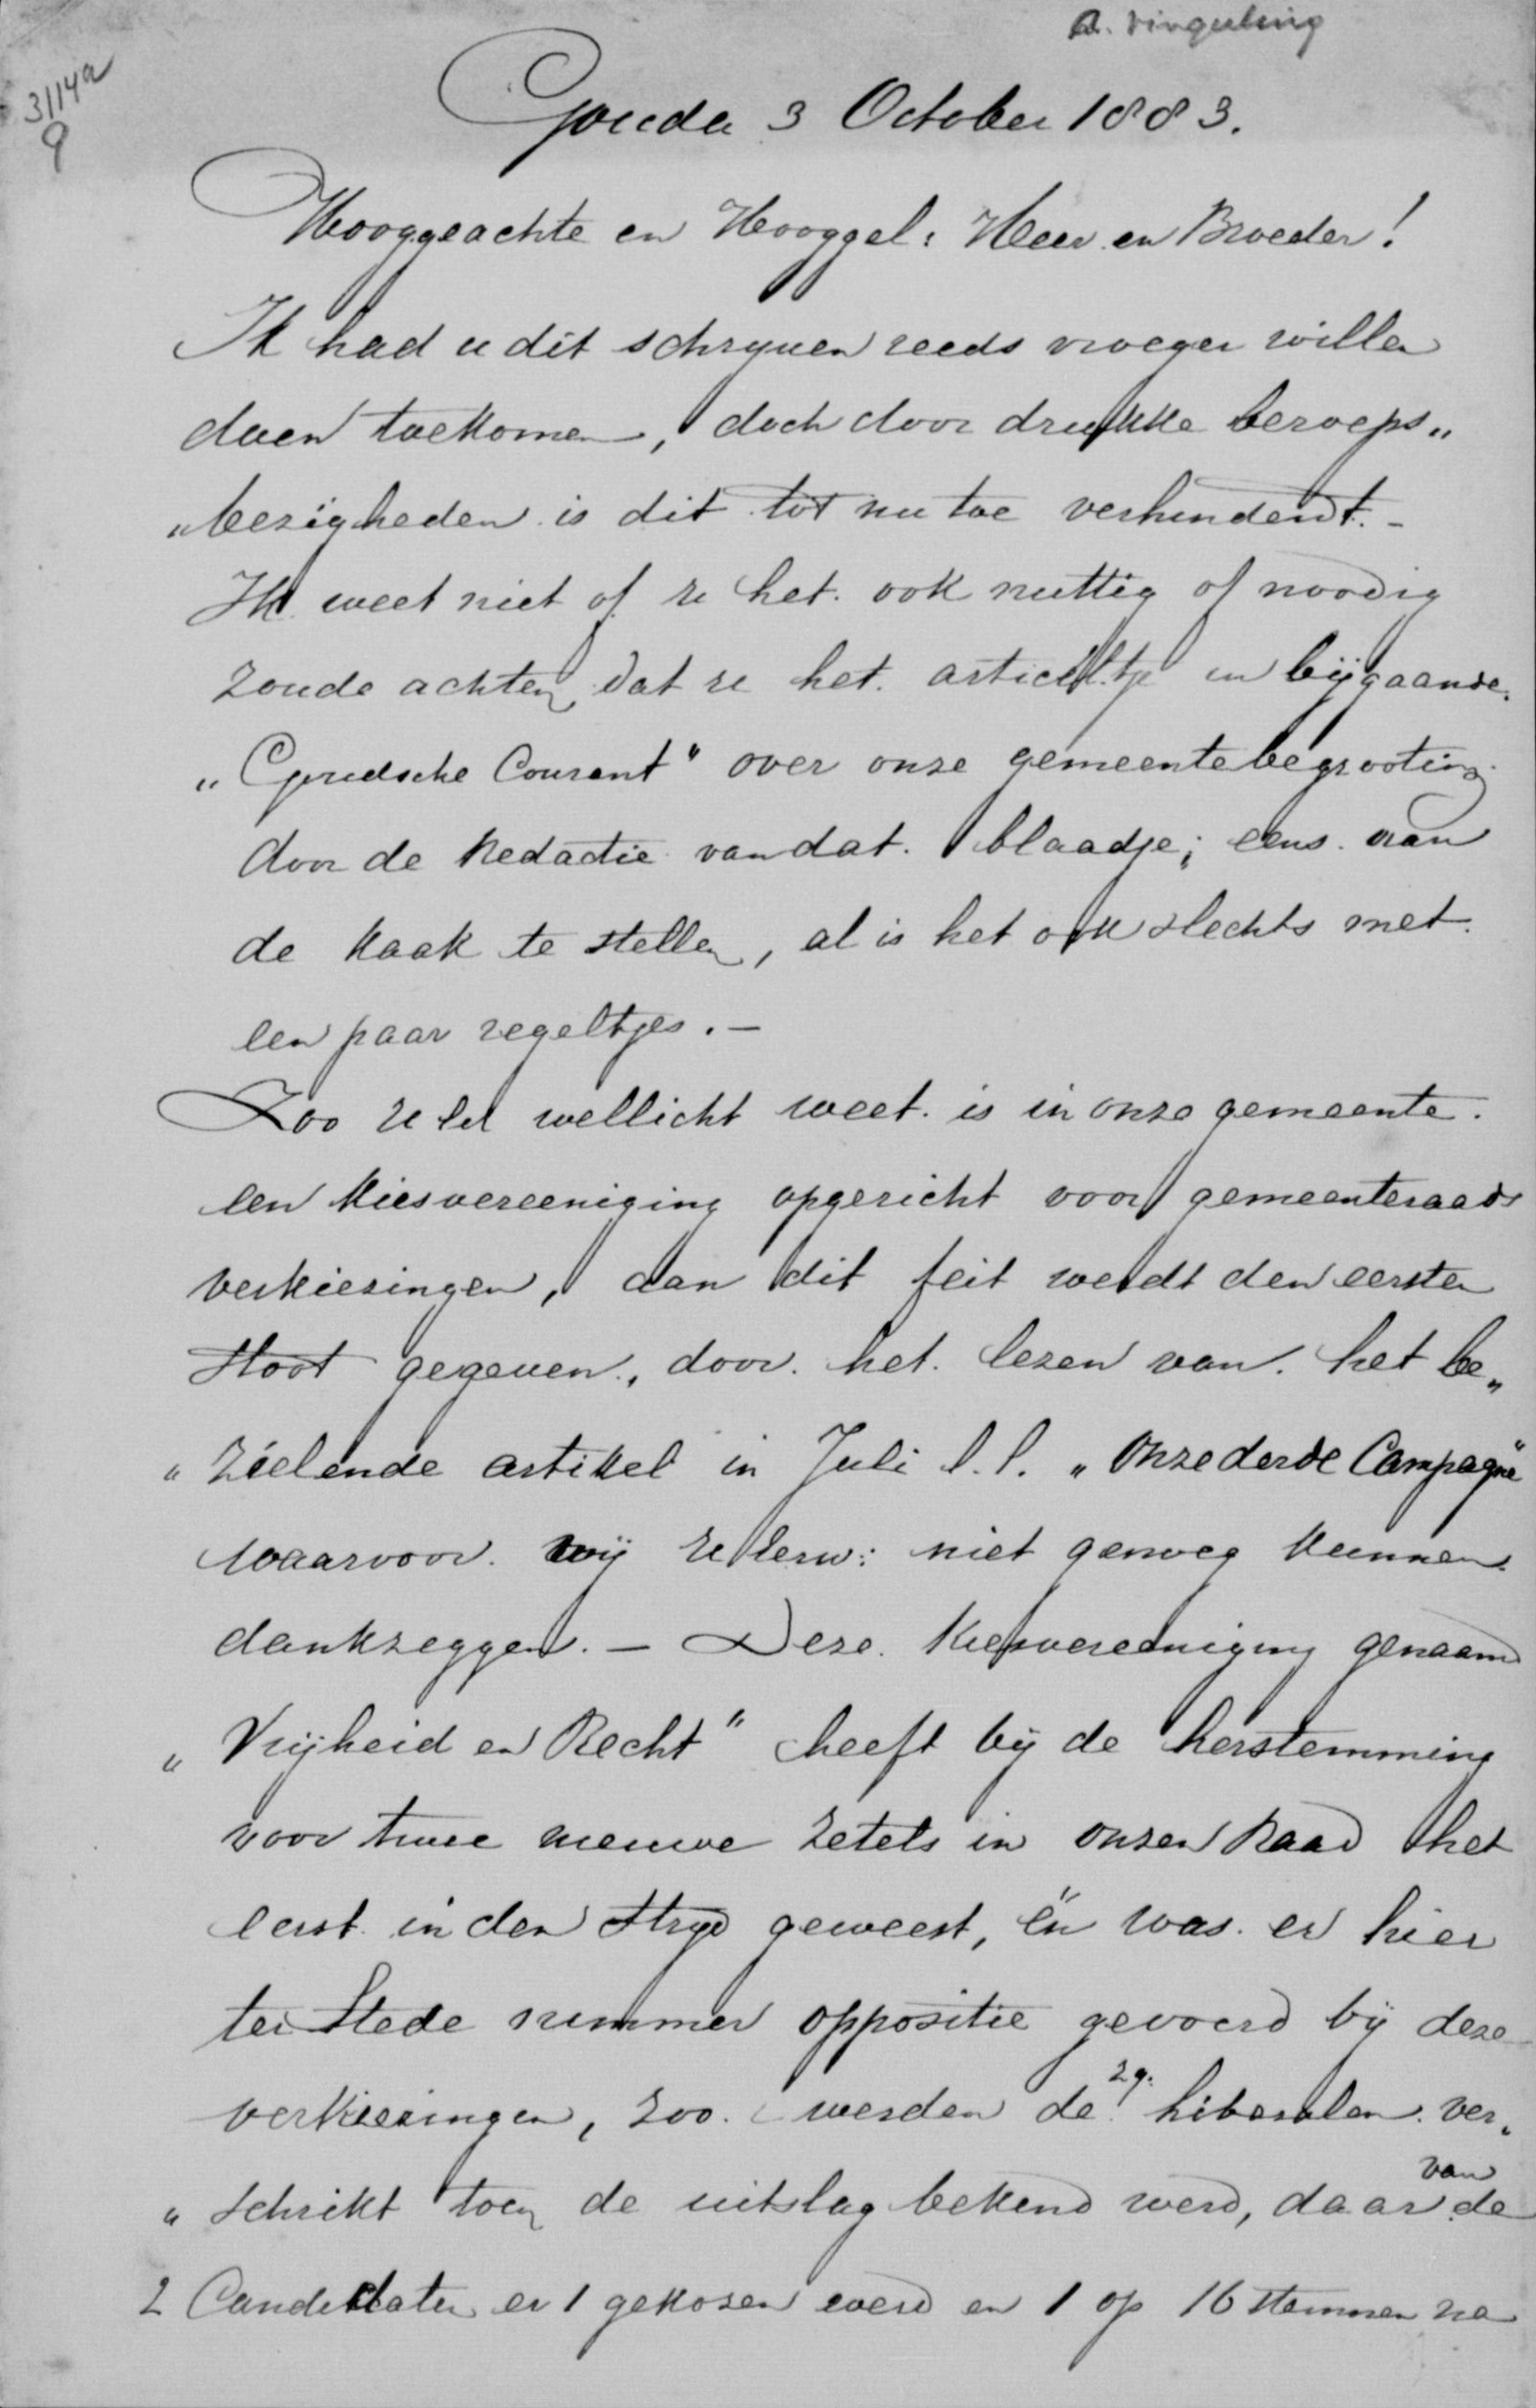 A. Vingerling
3114a
9
Gouda 3 October 1883.
Hooggeachte en Hooggel: Heer en Broeder!
Ik had u dit schryven reeds vroeger willen
doen toekomen, doch door drukke beroeps„
„bezigheden is dit tot nu toe verhinderdt. –
Ik weet niet of u het ook nuttig of noodig
zoude achten, dat u het articeltje in bijgaande
„Goudsche Courant" over onze gemeentebegrooting
door de Redactie van dat blaadje; eens aan
de kaak te stellen, al is het ook slechts met
een paar regeltjes. –
Zoo u Ed wellicht weet is in onze gemeente
een Kiesvereeniging opgericht voor gemeenteraads
verkiezingen, aan dit feit werdt den eersten
stoot gegeven, door het lezen van het be„
„zielende artikel in Juli l.l. „Onze derde Campagne"
waarvoor wij u Eerw: niet genoeg kunnen
dankzeggen. – Deze Kiesvereeniging genaamd
„Vrijheid en Recht" heeft bij de herstemming
voor twee nieuwe zetels in onzen Raad het
eerst in den stryd geweest, én was er hier
ter Stede nimmer oppositie gevoerd bij deze
verkiezingen, zoo werden de zg. liberalen ver„
„schrikt toen de uitslag bekend werd, daar van de
2 Candidaten er 1 gekozen werd en 1 op 16 stemmen na